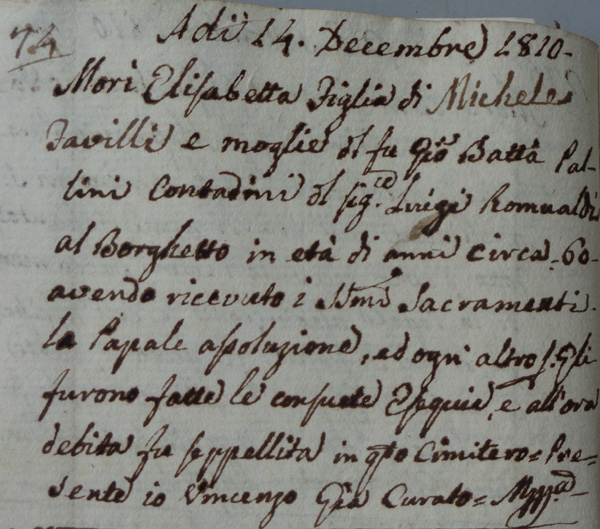 74
Adi 14. Decembre 1810.
Morì Elisabetta Figlia di Michele
Favilli e moglie dl fu Gio Batta Pal-
lini Contadini dl sig.re Luigi Romualdi
al Borghetto in età di anni circa 60.
avendo ricevuto i SSmi Sacramenti.
la Papale assoluzione, ed ogni altro
furono fatte le consuete Esequie, e all'ora
debita fu seppellita in qto Cimitero = Pre-
sente io Vincenzo Curato =